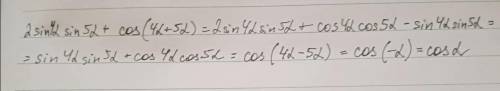 2sin4α sin5α + cos(4α+5α) = 2sin4α sin5α + cos4α cos5α - sin4α sin5α =
= sin4α sin5α + cos4α cos5α = cos(4α-5α) = cos(-α) = cosα